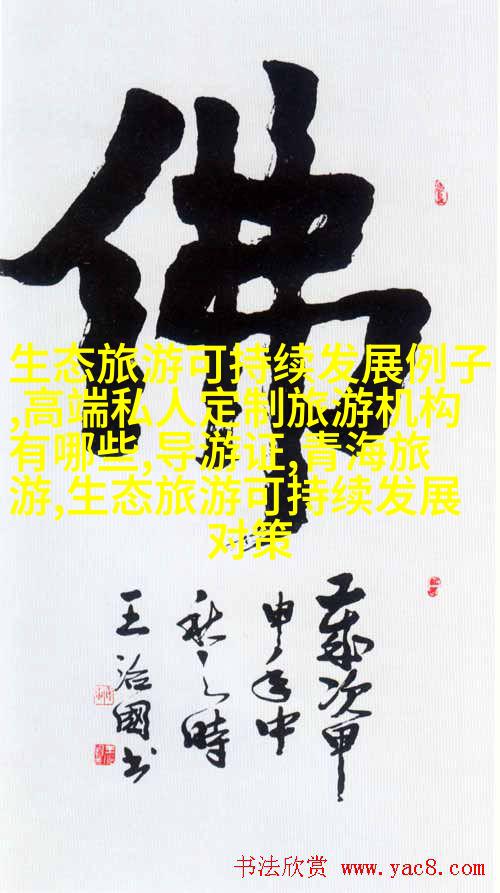 佛
生态旅游可持续发展例子
,高端私人定制旅游机构
有哪些,导游证,青海旅
游,生态旅游可持续发展
对策
岁次甲
申年中
秋之时
王治国书
书法欣赏 www.yac8.com